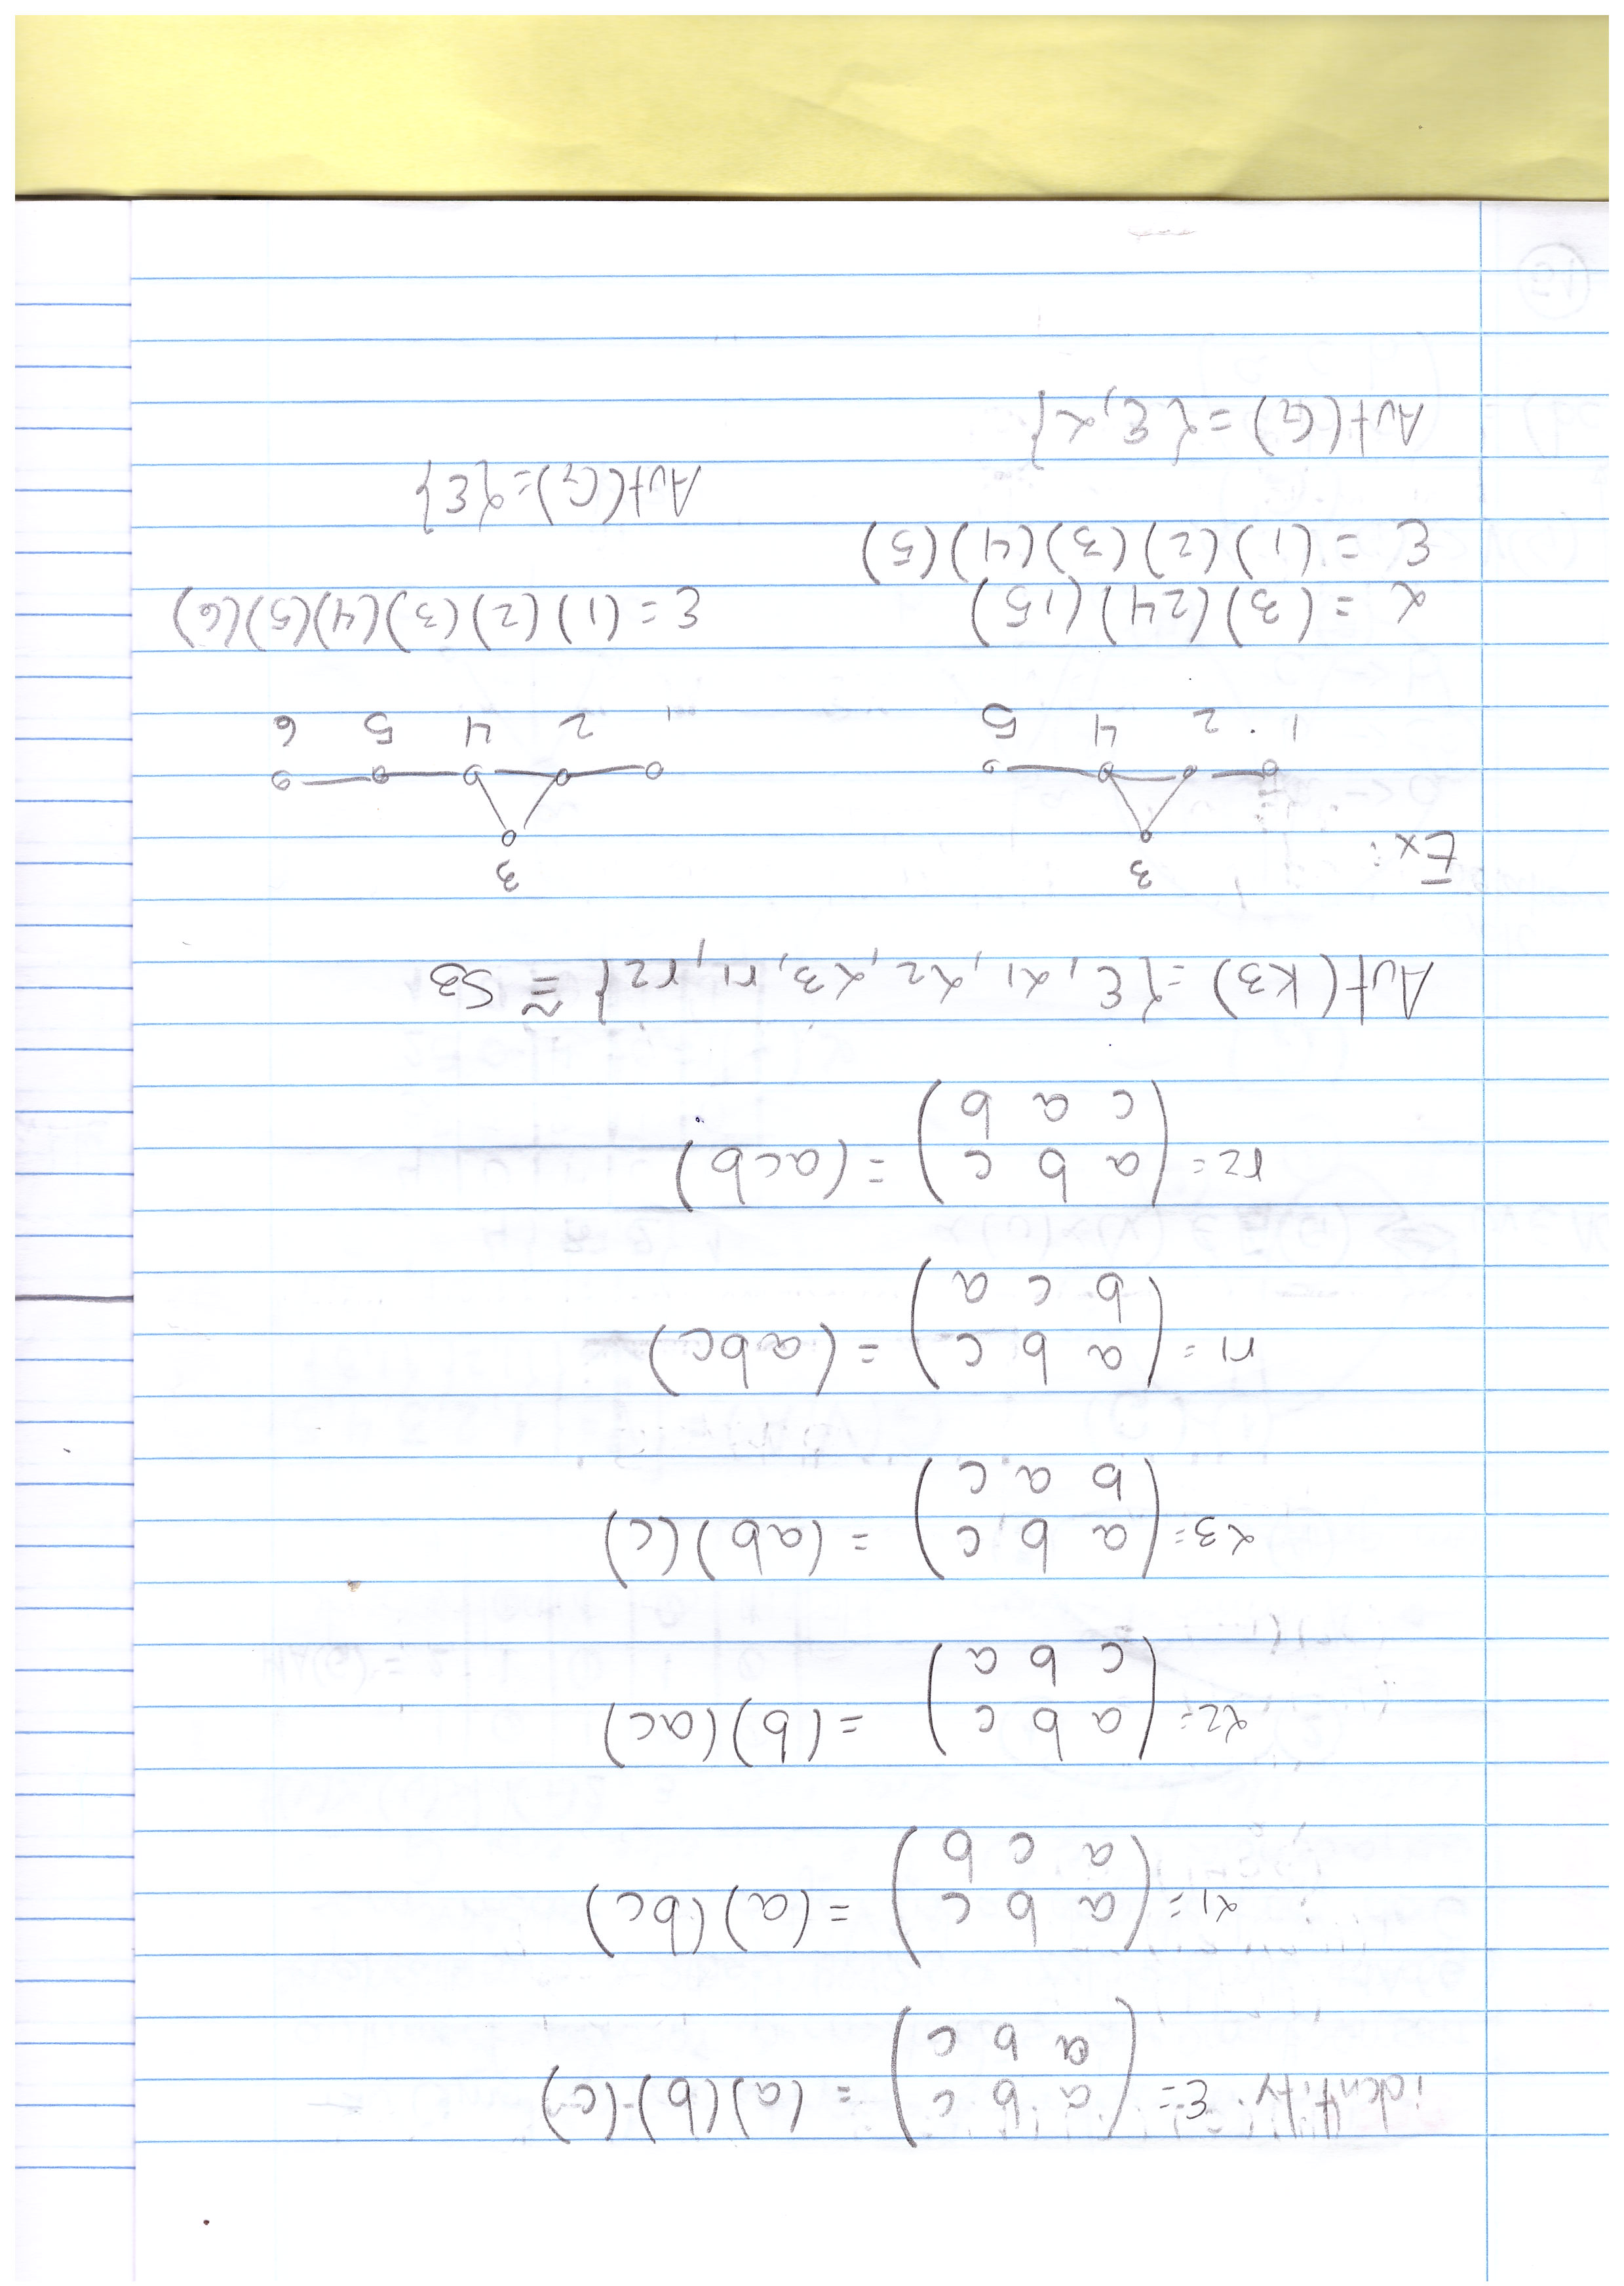 identity. ε = ( a b c ) = (a)(b)(c)
a b c
α1 = ( a b c ) = (a)(bc)
a c b
α2 = ( a b c ) = (b)(ac)
c b a
α3 = ( a b c ) = (ab)(c)
b a c
r1 = ( a b c ) = (abc)
b c a
r2 = ( a b c ) = (acb)
c a b
Aut(K3) = {ε, α1, α2, α3, r1, r2} ≅ S3
Ex:
3
1 2 4 5
3
1 2 4 5 6
α = (3)(24)(15)
ε = (1)(2)(3)(4)(5)
Aut(G) = {ε, α}
ε = (1)(2)(3)(4)(5)(6)
Aut(G) = {ε}